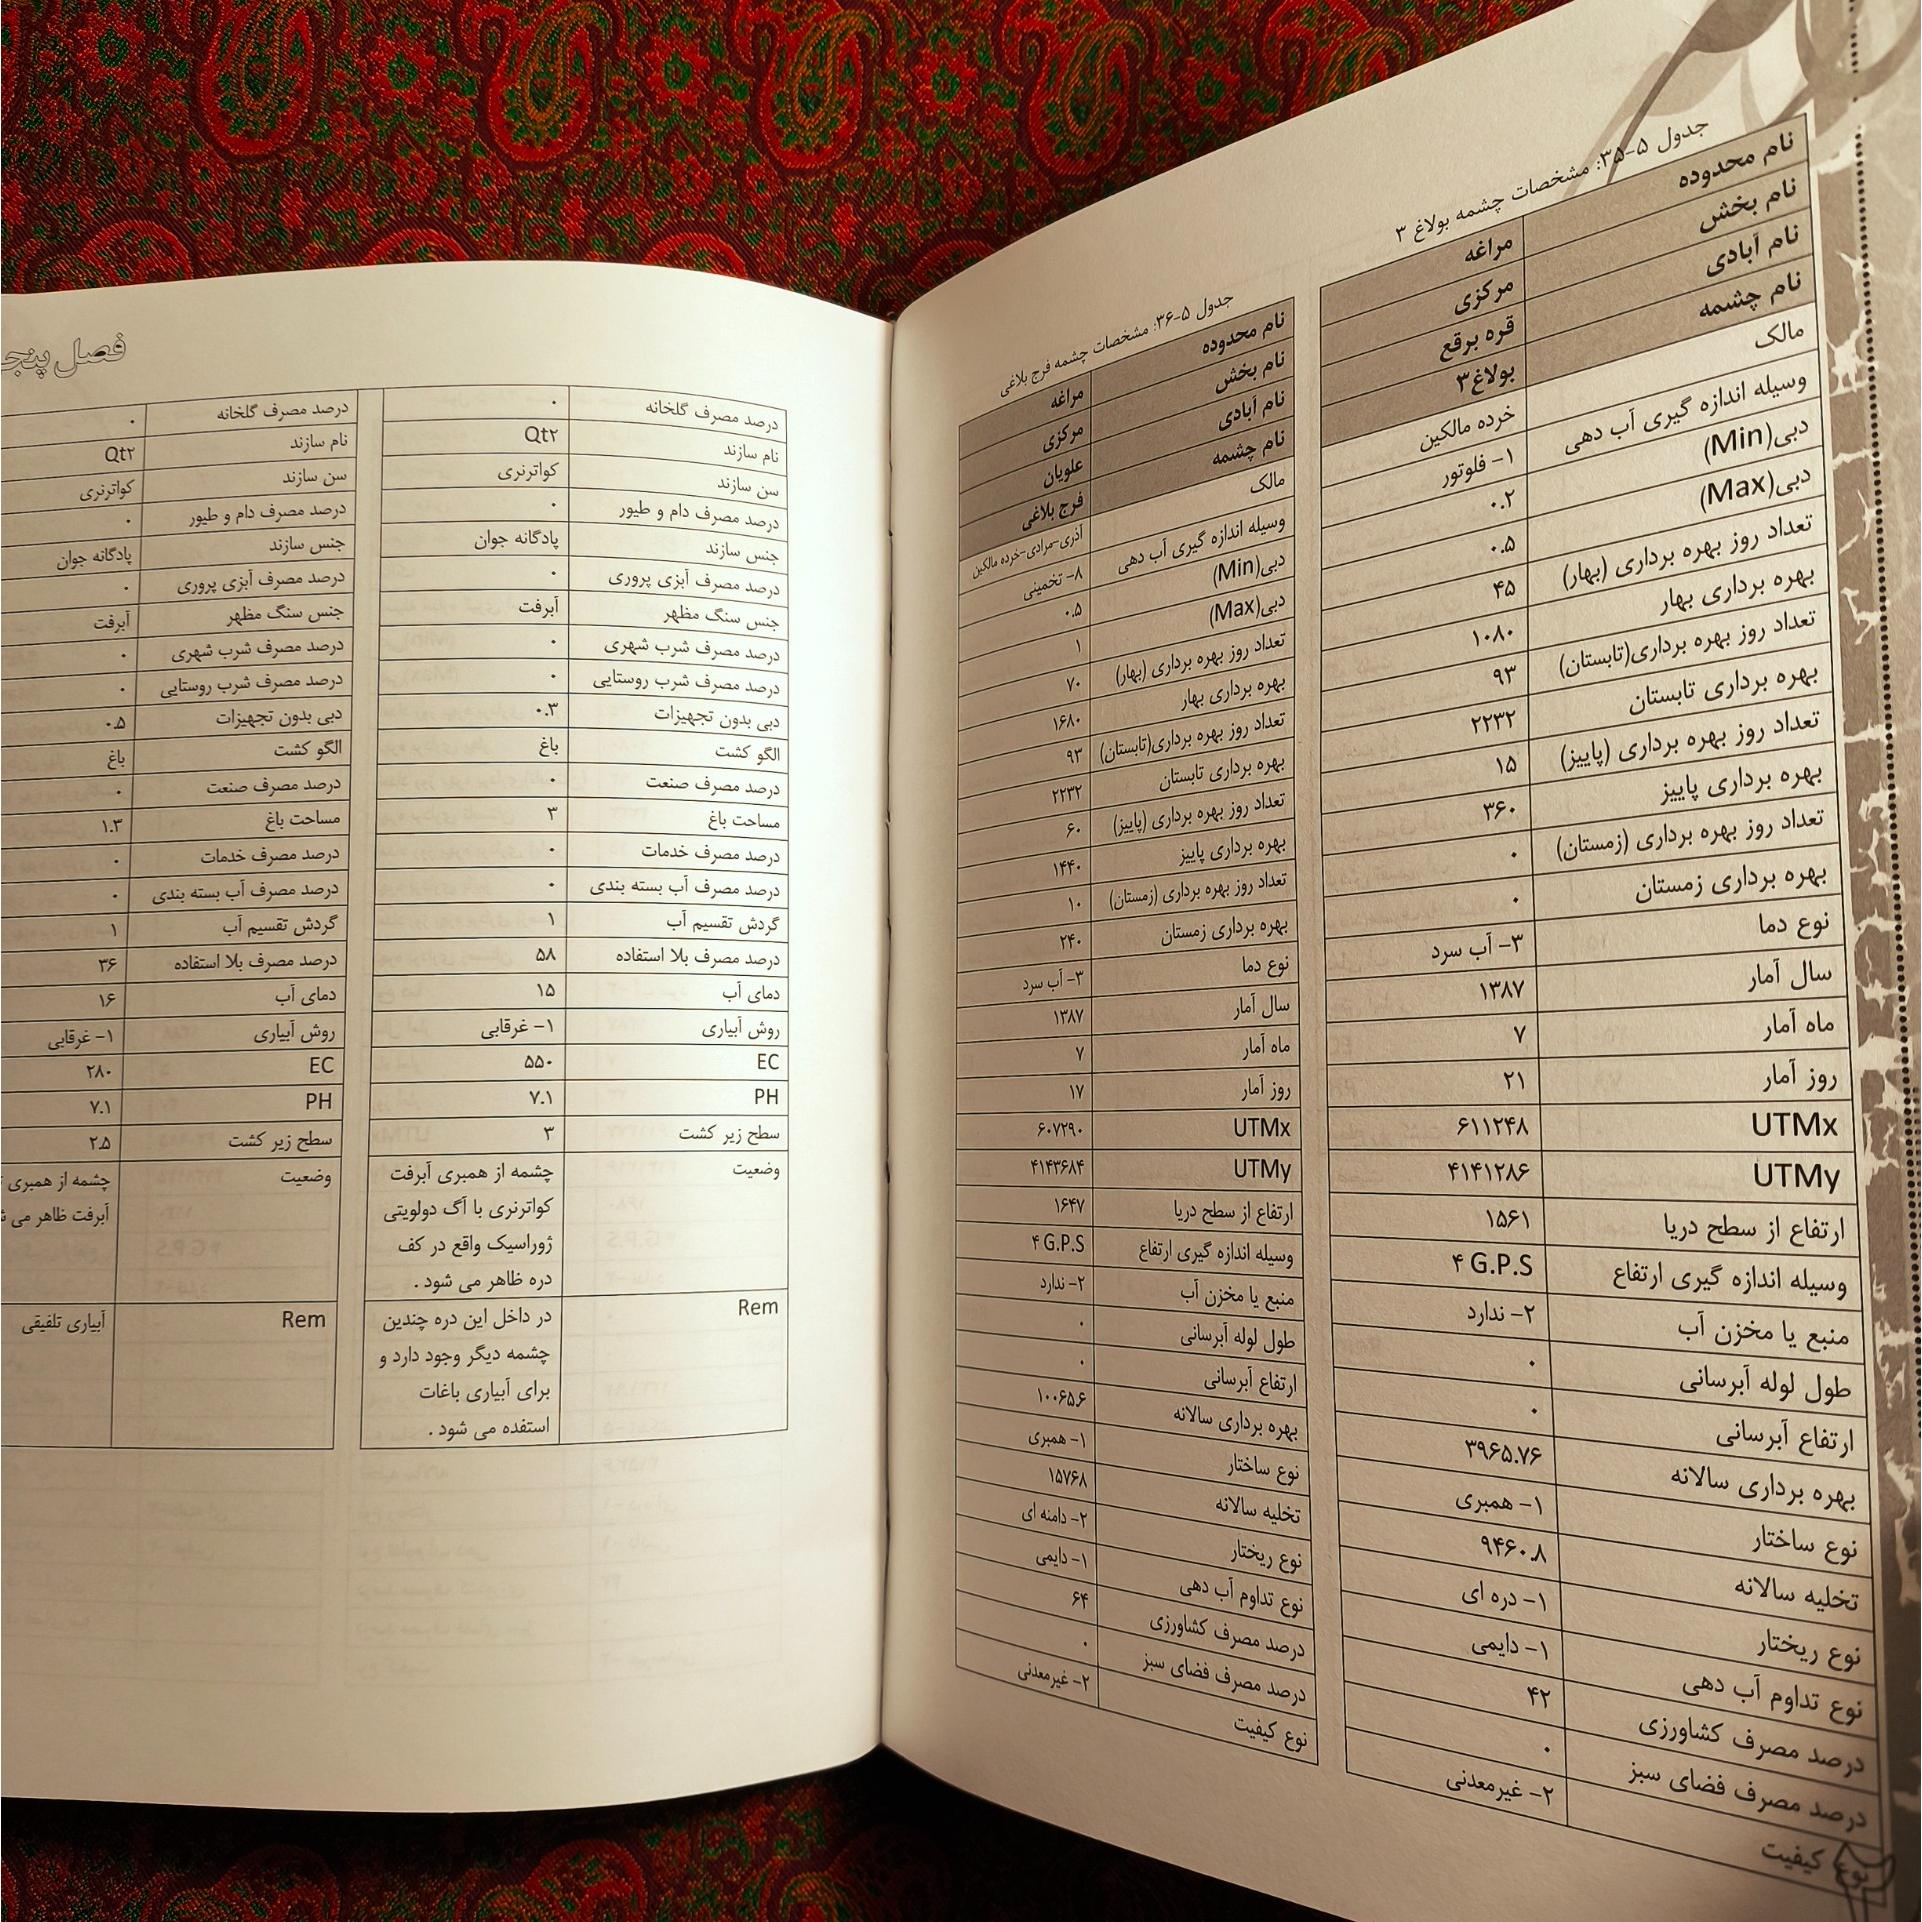 جدول ۵-۳۵: مشخصات چشمه بولاغ ۳
نام محدوده مراغه
نام بخش مرکزی
نام آبادی قره برقع
نام چشمه بولاغ۳
مالک خرده مالکین
وسیله اندازه گیری آب دهی ۱- فلوتور
دبی(Min) ۰.۲
دبی(Max) ۰.۵
تعداد روز بهره برداری (بهار) ۴۵
بهره برداری بهار ۱۰۸۰
تعداد روز بهره برداری(تابستان) ۹۳
بهره برداری تابستان ۲۲۳۲
تعداد روز بهره برداری (پاییز) ۱۵
بهره برداری پاییز ۳۶۰
تعداد روز بهره برداری (زمستان) ۰
بهره برداری زمستان ۰
نوع دما ۳- آب سرد
سال آمار ۱۳۸۷
ماه آمار ۷
روز آمار ۲۱
UTMx ۶۱۱۲۴۸
UTMy ۴۱۴۱۲۸۶
ارتفاع از سطح دریا ۱۵۶۱
وسیله اندازه گیری ارتفاع ۴ G.P.S
منبع یا مخزن آب ۲- ندارد
طول لوله آبرسانی ۰
ارتفاع آبرسانی ۰
بهره برداری سالانه ۳۹۶۵.۷۶
نوع ساختار ۱- همبری
تخلیه سالانه ۹۴۶۰.۸
نوع ریختار ۱- دره ای
نوع تداوم آب دهی ۱- دایمی
درصد مصرف کشاورزی ۴۲
درصد مصرف فضای سبز ۰
نوع کیفیت ۲- غیرمعدنی
جدول ۵-۳۶: مشخصات چشمه فرج بلاغی
نام محدوده مراغه
نام بخش مرکزی
نام آبادی علویان
نام چشمه فرج بلاغی
مالک آذری-مرادی-خرده مالکین
وسیله اندازه گیری آب دهی ۸- تخمینی
دبی(Min) ۰.۵
دبی(Max) ۱
تعداد روز بهره برداری (بهار) ۷۰
بهره برداری بهار ۱۶۸۰
تعداد روز بهره برداری(تابستان) ۹۳
بهره برداری تابستان ۲۲۳۲
تعداد روز بهره برداری (پاییز) ۶۰
بهره برداری پاییز ۱۴۴۰
تعداد روز بهره برداری (زمستان) ۱۰
بهره برداری زمستان ۲۴۰
نوع دما ۳- آب سرد
سال آمار ۱۳۸۷
ماه آمار ۷
روز آمار ۱۷
UTMx ۶۰۷۲۹۰
UTMy ۴۱۴۳۶۸۴
ارتفاع از سطح دریا ۱۶۴۷
وسیله اندازه گیری ارتفاع ۴ G.P.S
منبع یا مخزن آب ۲- ندارد
طول لوله آبرسانی ۰
ارتفاع آبرسانی ۰
بهره برداری سالانه ۱۰۰۶۵.۶
نوع ساختار ۱- همبری
تخلیه سالانه ۱۵۷۶۸
نوع ریختار ۲- دامنه ای
نوع تداوم آب دهی ۱- دایمی
درصد مصرف کشاورزی ۶۴
درصد مصرف فضای سبز ۰
نوع کیفیت ۲- غیرمعدنی
فصل
درصد مصرف گلخانه ۰
نام سازند Qt۲
سن سازند کواترنری
درصد مصرف دام و طیور ۰
جنس سازند پادگانه جوان
درصد مصرف آبزی پروری ۰
جنس سنگ مظهر آبرفت
درصد مصرف شرب شهری ۰
درصد مصرف شرب روستایی ۰
دبی بدون تجهیزات ۰.۳
الگو کشت باغ
درصد مصرف صنعت ۰
مساحت باغ ۳
درصد مصرف خدمات ۰
درصد مصرف آب بسته بندی ۰
گردش تقسیم آب ۱
درصد مصرف بلا استفاده ۵۸
دمای آب ۱۵
روش آبیاری ۱- غرقابی
EC ۵۵۰
PH ۷.۱
سطح زیر کشت ۳
وضعیت چشمه از همبری آبرفت
کواترنری با آگ دولویتی
ژوراسیک واقع در کف
دره ظاهر می شود .
Rem در داخل این دره چندین
چشمه دیگر وجود دارد و
برای آبیاری باغات
استفده می شود .
درصد مصرف گلخانه ۰
نام سازند Qt۲
سن سازند کواترنری
درصد مصرف دام و طیور ۰
جنس سازند پادگانه جوان
درصد مصرف آبزی پروری ۰
جنس سنگ مظهر آبرفت
درصد مصرف شرب شهری ۰
درصد مصرف شرب روستایی ۰
دبی بدون تجهیزات ۰.۵
الگو کشت باغ
درصد مصرف صنعت ۰
مساحت باغ ۱.۳
درصد مصرف خدمات ۰
درصد مصرف آب بسته بندی ۰
گردش تقسیم آب ۱
درصد مصرف بلا استفاده ۳۶
دمای آب ۱۶
روش آبیاری ۱- غرقابی
EC ۲۸۰
PH ۷.۱
سطح زیر کشت ۲.۵
وضعیت چشمه از همبری
آبرفت ظاهر می
Rem آبیاری تلفیقی